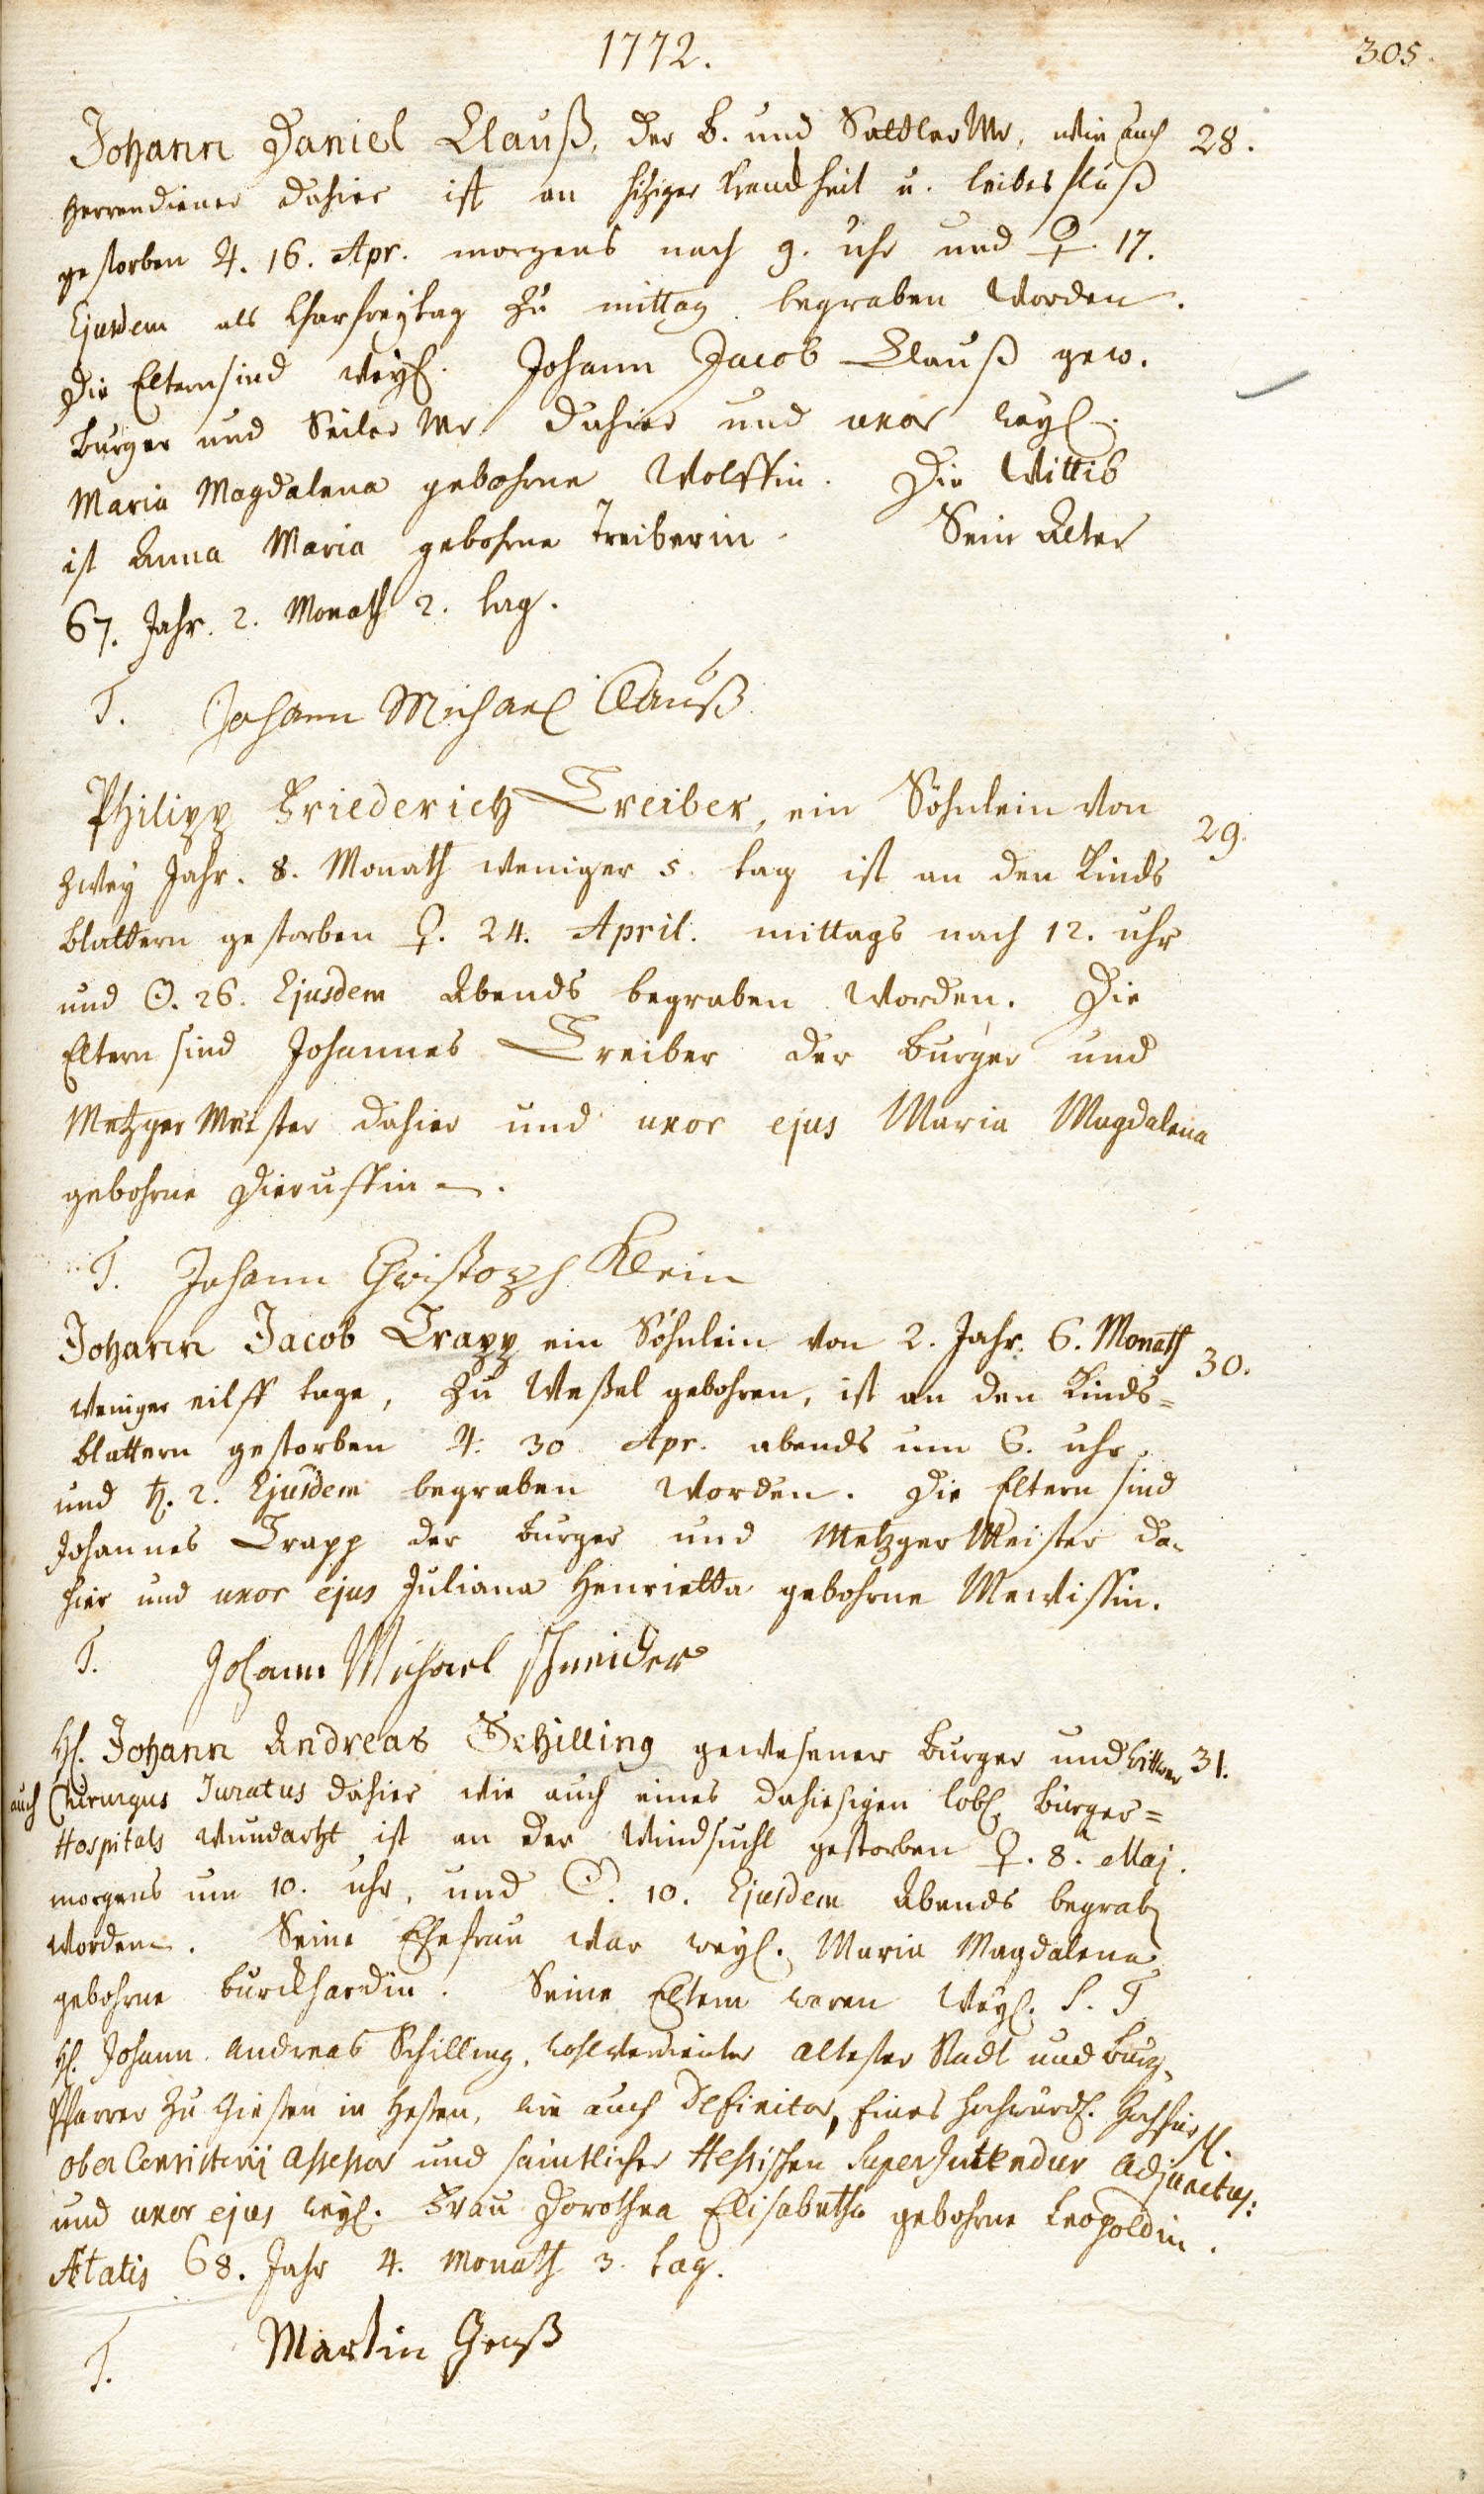 1772.
305.
Johann Daniel Clauß, der B. und Sattler Mr, wie auch 28.
Herrendiener dahier ist an hiziger Kranckheit u. leibesfluß
gestorben ♃. 16. Apr. morgens nach 9. uhr und ♀. 17.
Ejusdem als Charfreytag zu mittag begraben worden.
Die Eltern sind weyl. Johann Jacob Clauß gew.
burger und Seiler Mr dahier und uxor weyl.
Maria Magdalena gebohrne Wolffin. Die Wittib
ist Anna Maria gebohrne Treiberin. Sein Alter
67. Jahr. 2. Monath 2. tag.
T. Johann Michael Clauß
Philipp Friederich Treiber, ein Söhnlein von
29.
zwey Jahr. 8. Monath weniger 5. tag ist an den Kinds
blattern gestorben ♀. 24. April. mittags nach 12. uhr
und ☉. 26. Ejusdem Abends begraben worden. Die
Eltern sind Johannes Treiber der burger und
Metzger Meister dahier und uxor ejus Maria Magdalena
gebohrne
T. Johann Christoph Klein
Johann Jacob Trapp ein Söhnlein von 2. Jahr. 6. Monath
30.
weniger eilff tage, zu Weßel gebohren, ist an den Kinds=
blattern gestorben ♃. 30 Apr. abends um 6. uhr
und ♄. 2. Ejusdem begraben worden. Die Eltern sind
Johannes Trapp der burger und Metzger Meister da-
hier und uxor ejus Juliana Henrietta gebohrne Mewissin.
T. Johann Michael Schneider
H. Johann Andreas Schilling gewesener burger und Wittwer 31.
auch Chirurgus Juratus dahier wie auch eines dahiesigen löbl. Burger=
Hospitals Wundartzt ist an der Windsucht gestorben ♀. 8. Maj.
morgens um 10. uhr, und ☉. 10. Ejusdem Abends begraben
worden. Seine Ehefrau war weyl. Maria Magdalena
gebohrne Burckhardin. Seine Eltern waren Weyl. S. T.
H. Johann Andreas Schilling, wohlverdienter altester Stadt und Burg-
Pfarrer zu Giesen in Heßen, wie auch Definitor, Eines hochwürd. Hochfürstl.
ober Consistorij Assessor und sämtlicher Hessischen Superintendur Adjunctus:
und uxor ejus weyl. Frau Dorothea Elisabetha gebohrne Leopoldin.
Ætatis 68. Jahr 4. Monath 3. tag.
T. Martin